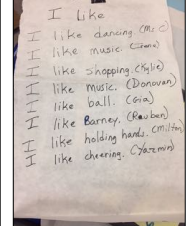 I like
I like dancing. (Mr. C)
I like music.
I like shopping. (Kylie)
I like music. (Donovan)
I like ball. (Gia)
I like Barney. (Reuben)
I like holding hands. (Milton)
I like cheering. (Yazmin)